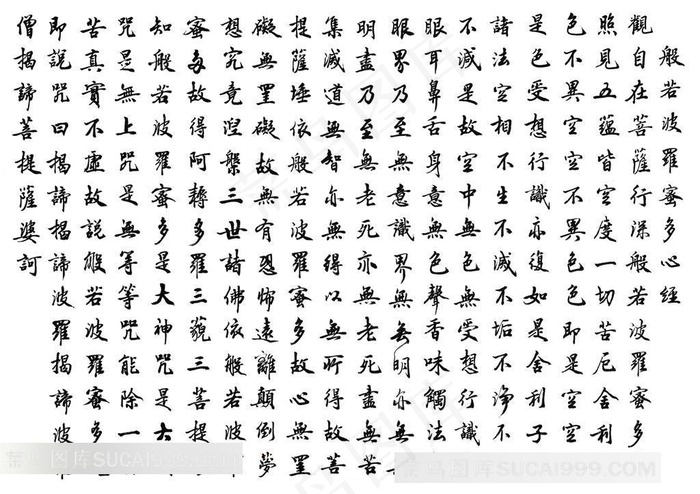 般若波羅蜜多心經
觀自在菩薩行深般若波羅蜜多
照見五蘊皆空度一切苦厄舍利
色不異空空不異色色即是空空
是色受想行識亦復如是舍利子
諸法空相不生不滅不垢不淨不
不滅是故空中無色無受想行識
眼耳鼻舌身意無色聲香味觸法
眼界乃至無意識界無無明亦
明盡乃至無老死亦無老死盡無苦
集滅道無智亦無得以無所得故菩
提薩埵依般若波羅蜜多故心無罣
礙無罣礙故無有恐怖遠離顛倒夢
想究竟涅槃三世諸佛依般若波
蜜多故得阿耨多羅三藐三菩提
知般若波羅蜜多是大神咒是大
咒是無上咒是無等等咒能除一
苦真實不虛故說般若波羅蜜多
即說咒曰揭諦揭諦波羅揭諦波
僧揭諦菩提薩婆訶
图库SUCAI999.COM
图库SUCAI999.COM